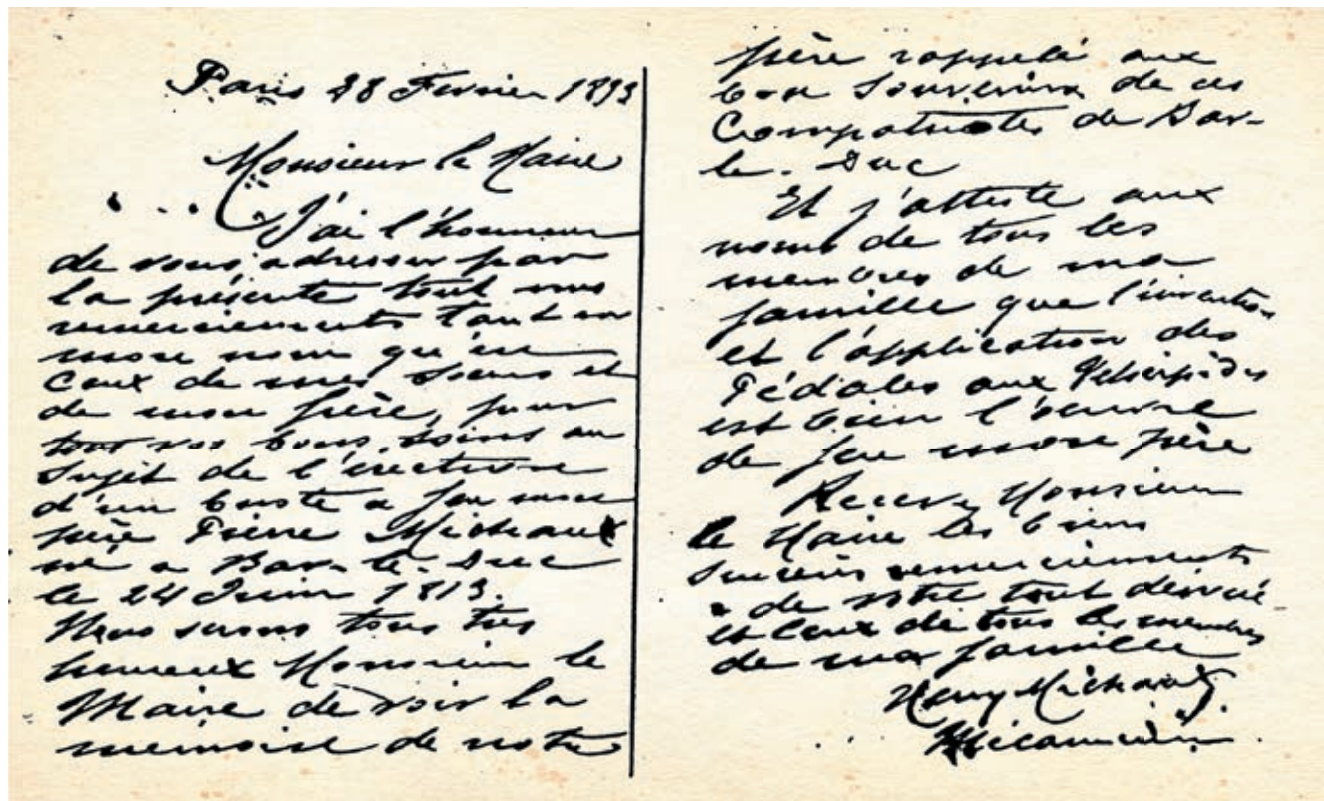 Paris 28 Fevrier 1893
Monsieur le Maire
J'ai l'honneur
de vous adresser par
la présente tout mes
remerciements tant en
mon nom qu'en
ceux de mes soeurs et
de mon frère, pour
tout vos bons soins au
sujet de l'érection
d'un buste a feu mon
père Pierre Michaux
né a Bar-le-Duc
le 24 Juin 1813.
Nous serons tous très
heureux Monsieur le
Maire de voir la
memoire de notre
père rappelé aux
bon souvenirs de ces
Compatriotes de Bar-
le-Duc
Et j'atteste aux
noms de tous les
membres de ma
famille que l'invention
et l'application des
Pédales aux Velocipèdes
est bien l'oeuvre
de feu mon père
Recevez Monsieur
le Maire les biens
sincères remerciements
de votre tout dévoué
et ceux de tous les membres
de ma famille
Henry Michaux
Mécanicien